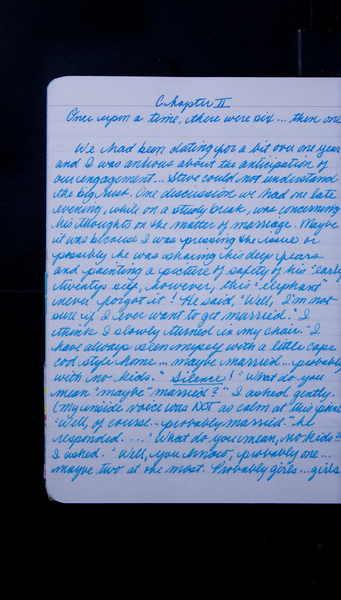 Chapter II
Once upon a time, there were six... then one
We had been dating for a bit over one year
and I was anxious about the anticipation of
our engagement... Steve could not understand
the big rush. One discussion we had one late
evening, while on a study break, was concerning
his thoughts on the matter of marriage. Maybe
it was because I was pressing the issue or
possibly he was sharing his deep fears
and painting a picture of safety of his "early
twenty's self, however, this "elephant"
never forgot it! He said, "Well, I'm not
sure if I ever want to get married." I
think I slowly turned in my chair. "I
have always seen myself with a little cape
cod style home... maybe married... probably
with no kids." Silence! "What do you
mean "maybe" married?" I asked gently.
(my inside voice was NOT as calm at this point
"Well, of course.. probably married" he
responded.... "What do you mean, no kids?!
I asked. "Well, you know, probably one...
maybe two at the most. Probably girls... girls